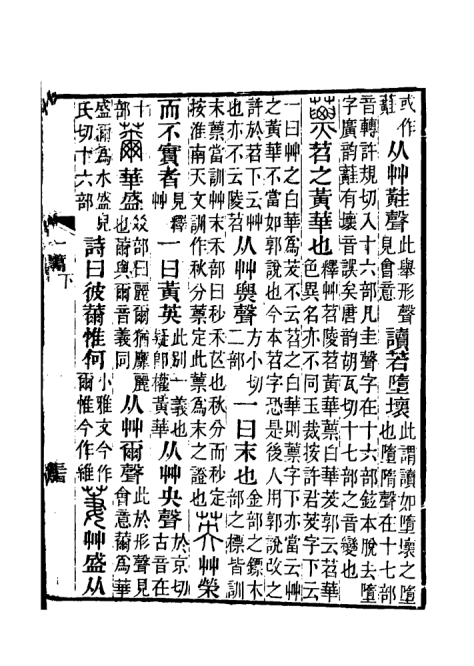 或作
蘳
从艸鞋聲
此舉形聲
見會意
讀若墮壞
此謂讀如墮壞之墮
也墮隋聲在十七部
音轉許規切入十六部凡圭聲字在十六部鉉本脫去墮
字廣韵蘳有壞音誤矣唐韵胡瓦切十七部之音變也
蔈苕之黃華也
釋艸苕陵苕黃華蔈白華茇郭云苕華
色異名亦不同玉裁按許君茇字下云
一曰艸之白華爲茇不云苕之白華則蔈字下亦當云艸
之黃華不當如郭說也今本苕字恐是後人用郭說改之
許於苕下云艸
也亦不云陵苕
从艸㶾聲
方小切
二部
一曰末也
金部之鏢木
部之標皆訓
末蔈當訓艸末禾部曰秒禾芒也秋分而秒定
按淮南天文訓作秋分蔈定此蔈爲末之證也
英艸榮
而不實者
見釋
艸
一曰黃英
此別一義也
疑卽權黃華
从艸央聲
於京切
古音在
十
部
薾華盛
㸚部曰麗爾猶靡麗
也薾與爾音義同
从艸爾聲
此於形聲見
會意薾爲華
盛濔爲水盛皃
氏切十六部
詩曰彼薾惟何
小雅文今作
爾惟今作維
萋艸盛从
一篇下